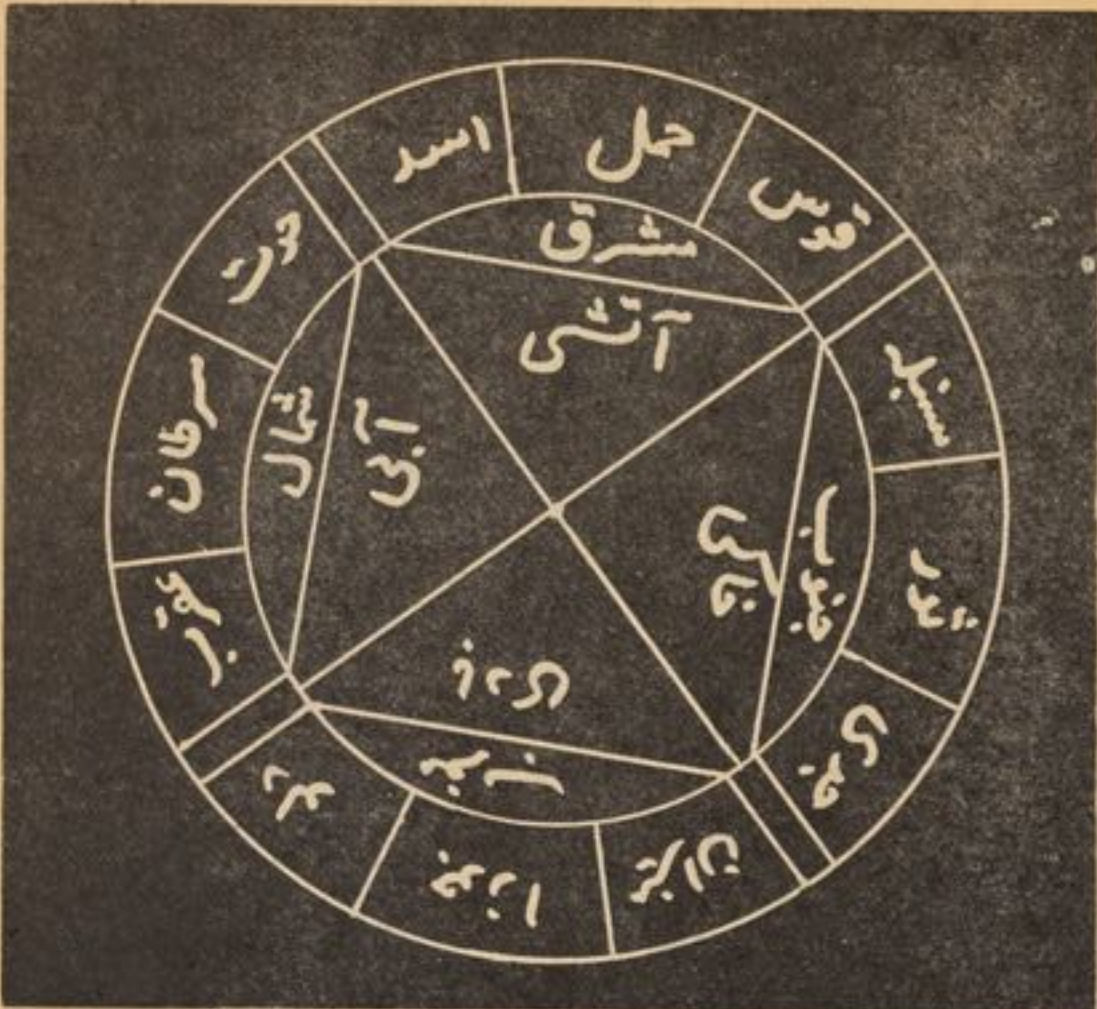 قوس
حمل
اسد
مشرق
آتشی
سنبلہ
ثور
جدی
جنوب
خاکی
میزان
جوزا
دلو
مغرب
بادی
عقرب
سرطان
حوت
شمال
آبی